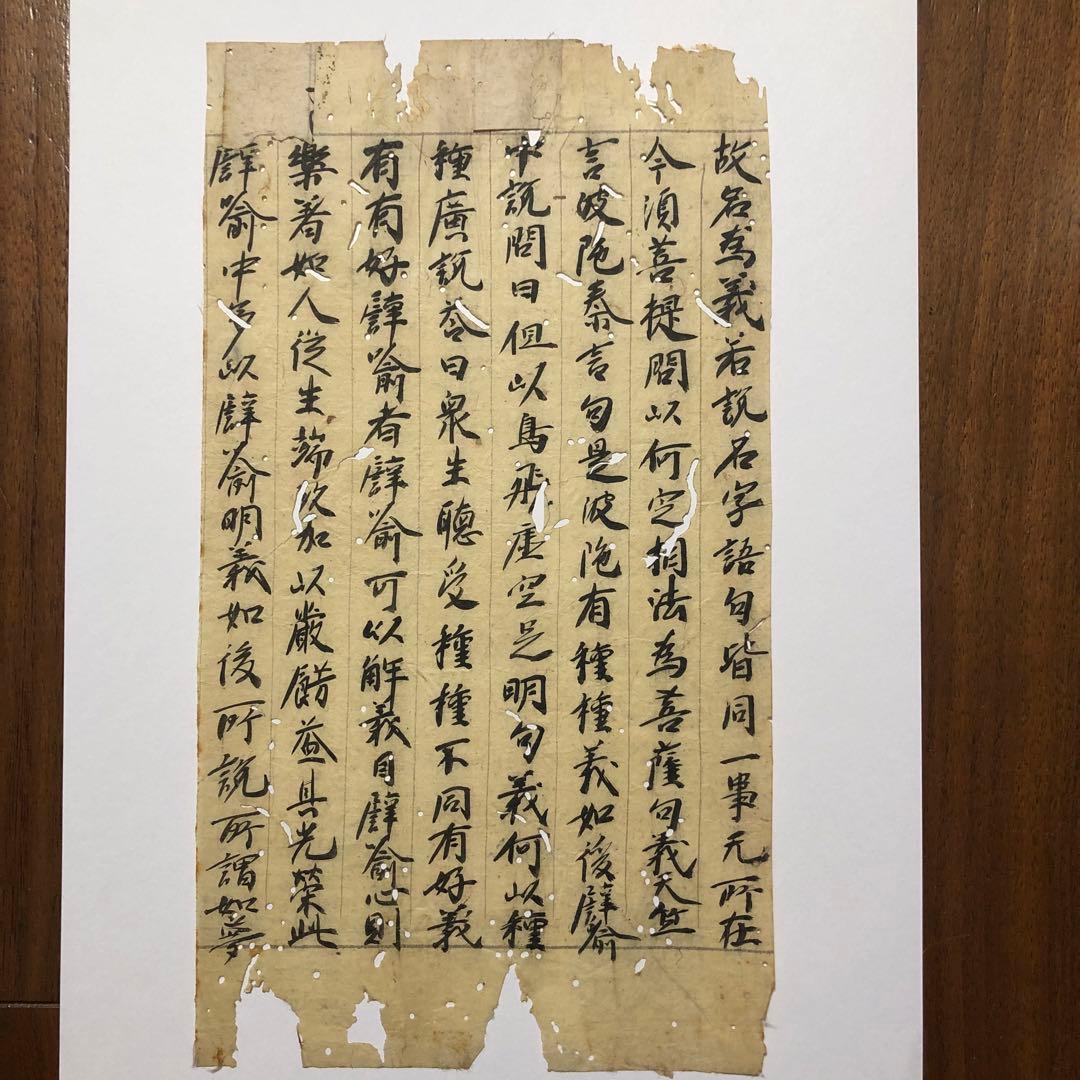 故名為義若說名字語句皆同一事无所在
今須菩提問以何定相法為菩薩句義天竺
言波陁秦言句是波陁有種種義如後譬喻
中說問曰但以鳥飛虛空足明句義何以種
種廣說荅曰眾生聽受種種不同有好義
有有好譬喻者譬喻可以解義因譬喻心則
樂著如人從生端政加以嚴餝益其光榮此
譬喻中多以譬喻明義如後所說所謂如夢